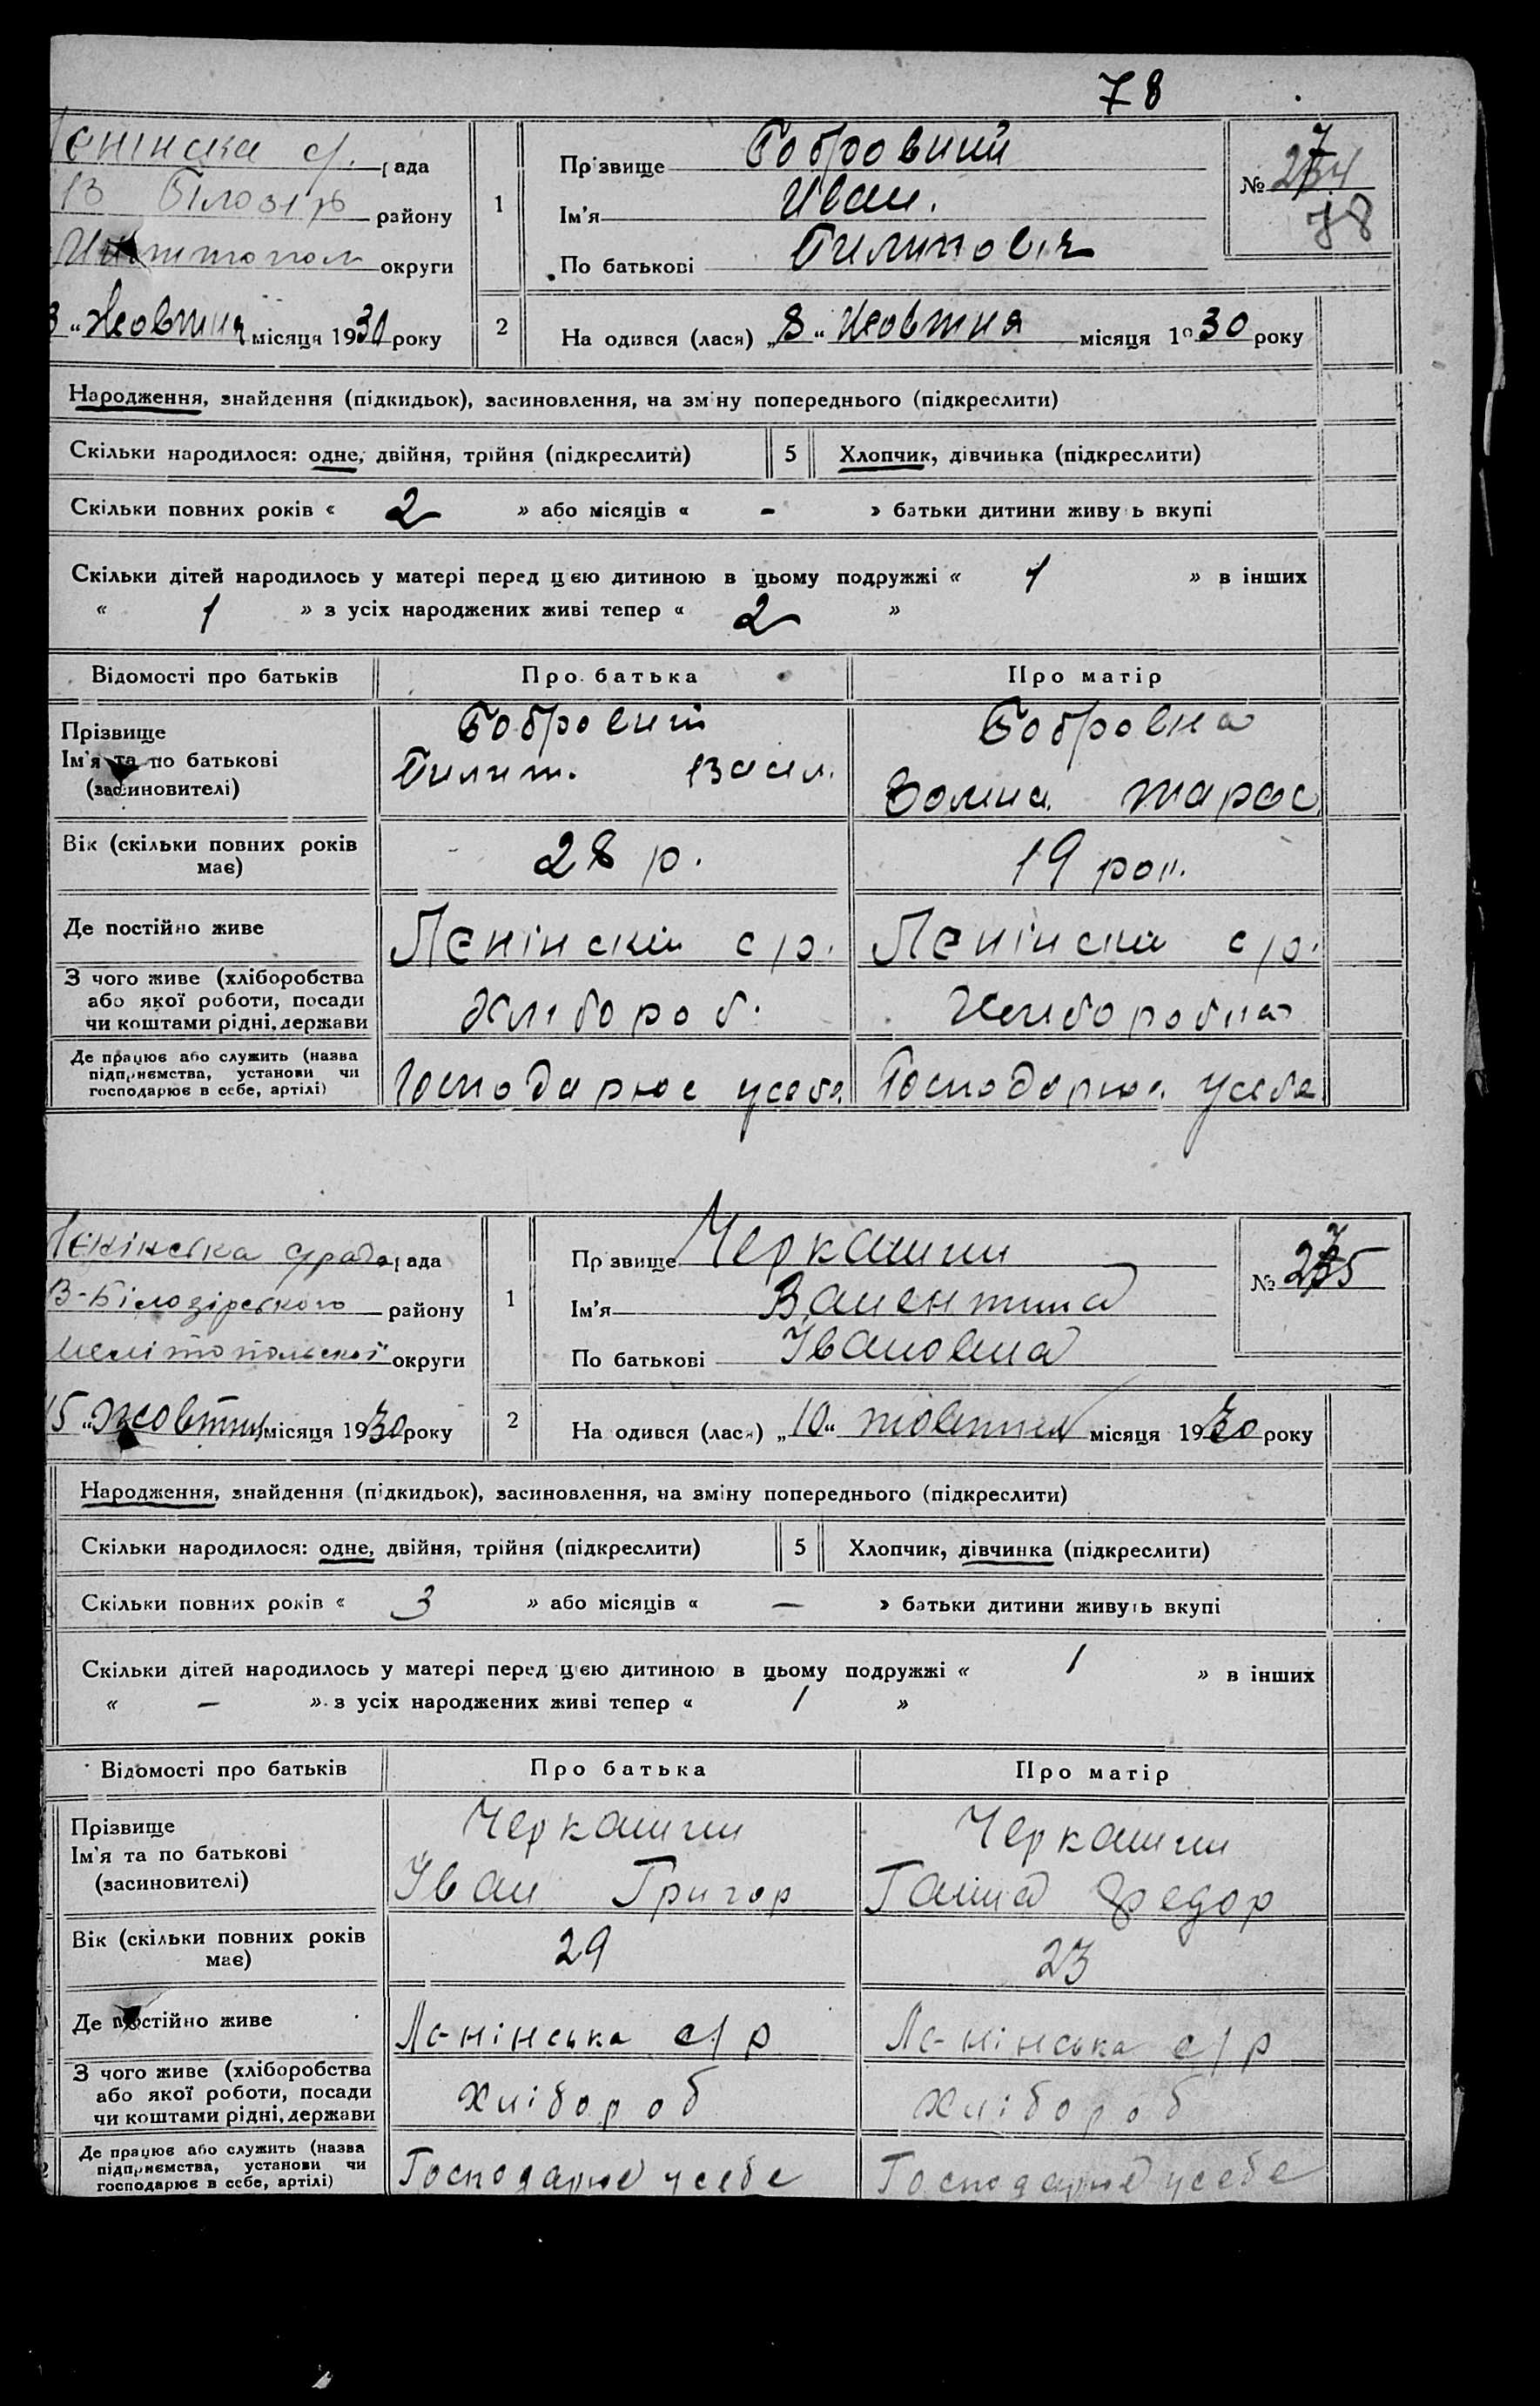 78
Ленінска с/. рада
В Білозір району
округи
Жовтня місяця 1930 року
1
Прізвище Бобровний
Ім'я Иван.
По батькові Пилипович
№ 274
78
2
На одився (лася) „8“ Жовтня місяця 1930 року
Народження, знайдення (підкидьок), засиновлення, на зміну попереднього (підкреслити)
Скільки народилося: одне, двійня, трійня (підкреслити) 5 Хлопчик, дівчинка (підкреслити)
Скільки повних років « 2 » або місяців « - » батьки дитини живу ь вкупі
Скільки дітей народилось у матері перед цією дитиною в цьому подружжі « 1 » в інших
« 1 » з усіх народжених живі тепер « 2 »
Відомості про батьків Про батька Про матір
Прізвище
Ім'я та по батькові
(засиновителі)
Бобровний
Пилип. Васил.
Бобровна
Тарас
Вік (скільки повних років має)
28 р.
19 рок.
Де постійно живе
Ленінска с/р.
Ленінска с/р.
З чого живе (хліборобства
або якої роботи, посади
чи коштами рідні, держави
Хлібороб.
Хліборобна
Де працює або служить (назва
підприємства, установи чи
господарює в себе, артілі)
Господарює усебе
Господорює усебе
Ленінська с/рада рада
В-Білозірського району
Мелітопольскої округи
15 „Жовтня місяця 1930 року
1
Пр звище Черкашин
Ім'я Валентина
По батькові Івановна
№ 275
2
На одився (лася) „10“ жовтня місяця 1930 року
Народження, знайдення (підкидьок), засиновлення, на зміну попереднього (підкреслити)
Скільки народилося: одне, двійня, трійня (підкреслити) 5 Хлопчик, дівчинка (підкреслити)
Скільки повних років « 3 » або місяців « — » батьки дитини живуть вкупі
Скільки дітей народилось у матері перед цією дитиною в цьому подружжі « 1 » в інших
« — » з усіх народжених живі тепер « 1 »
Відомості про батьків Про батька Про матір
Прізвище
Ім'я та по батькові
(засиновителі)
Черкашин
Іван Григор
Черкашин
Ганна Федор
Вік (скільки повних років має)
29
23
Де постійно живе
Ленінська с/р
Ленінська с/р
З чого живе (хліборобства
або якої роботи, посади
чи коштами рідні, держави
Хлібороб
Хлібороб
Де працює або служить (назва
підприємства, установи чи
господарює в себе, артілі)
Господарює усебе
Господарює усебе